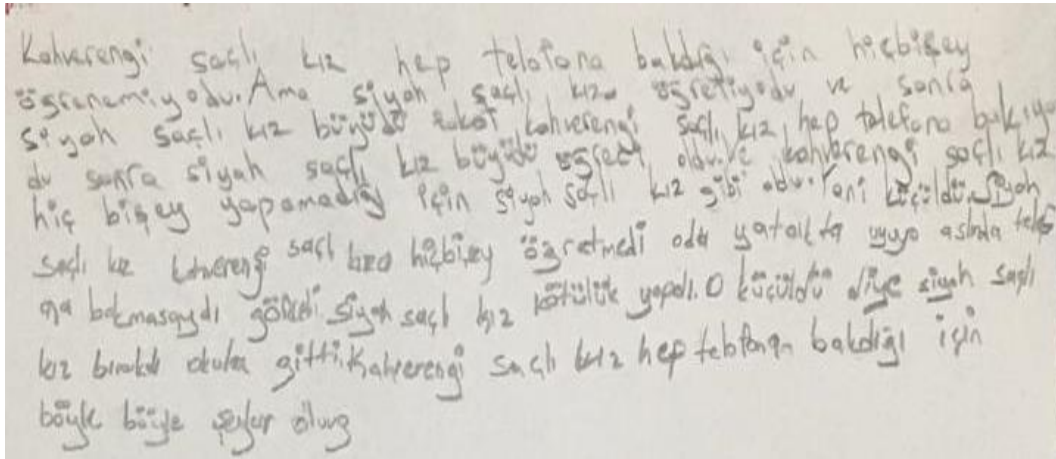 Kahverengi saçlı kız hep telofona bakdığı için hiçbişey
öğrenemiyodu. Ama siyah saçlı kız öğretiyodu ve sonra
siyah saçlı kız büyüdü fakat kahverengi saçlı kız hep telefona bakıyo
du sonra siyah saçlı kız büyüdü oldu. ve kahverengi saçlı kız
hiç bişey yapamadığı için siyah saçlı kız gibi oldu. Yani küçüldü. Siyah
saçlı kız kahverengi saçlı kıza hiçbişey öğretmedi oda yatakta uyuyo aslında telefo
na bakmasaydı siyah saçlı kız kötülük yapdı. O küçüldü diye siyah saçlı
kız okula gitti. Kahverengi saçlı kız hep bakdığı için
böyle böyle şeyler